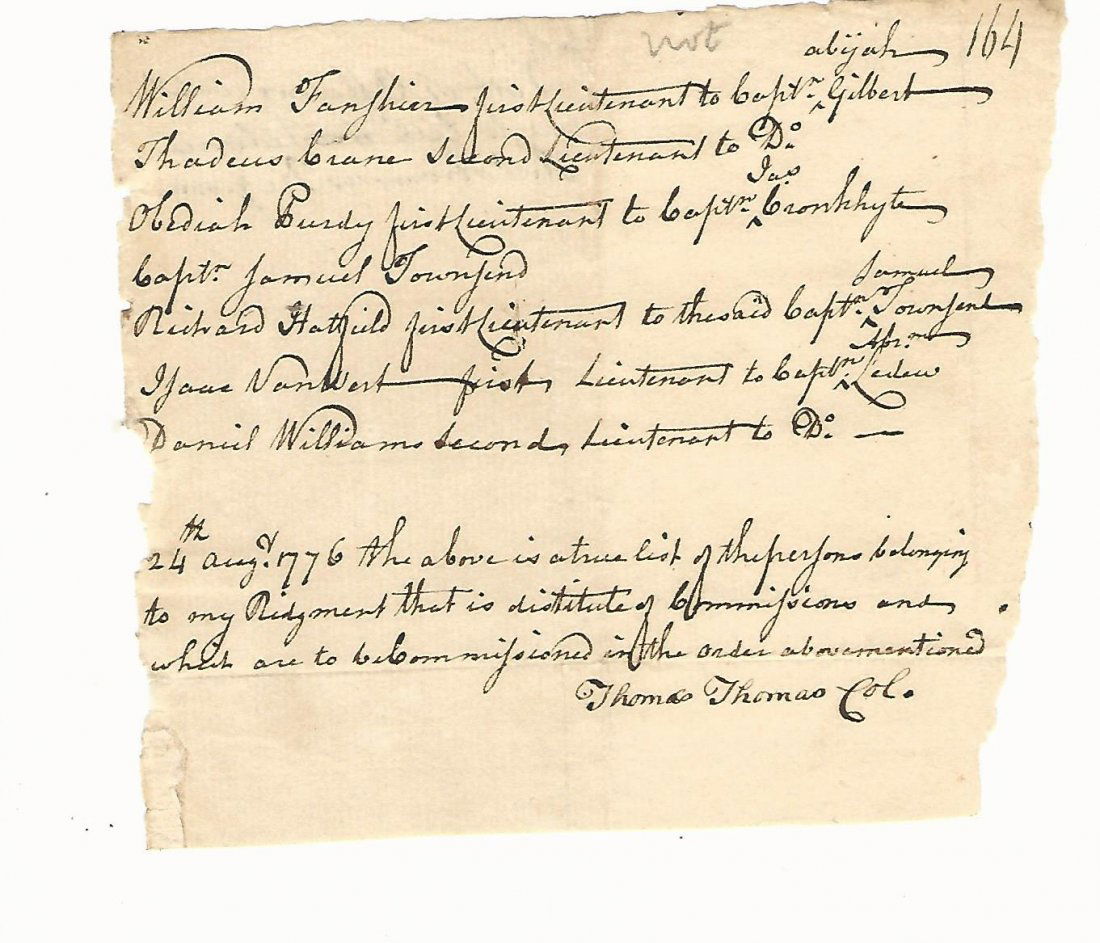 not
abijah 164
William Fanshier first Lieutenant to Captn. ^ Gilbert
Thadeus Crane Second Lieutenant to Do.
Jas.
Obediah Purdy first Lieutenant to Captn. ^ Cronkhyte
Captn. Samuel Townsend
Samuel
Richard Hatfield first Lieutenant to the said Captn. ^ Townsend
Abrm.
Isaac VanWert first Lieutenant to Captn. ^ Ledew
Daniel Williams Second Lieutenant to Do. —
24th Augt. 1776 the above is a true list of the persons belonging
to my Ridgment that is distitute of Commissions and
which are to be Commissioned in the order above mentioned
Thomas Thomas Col.